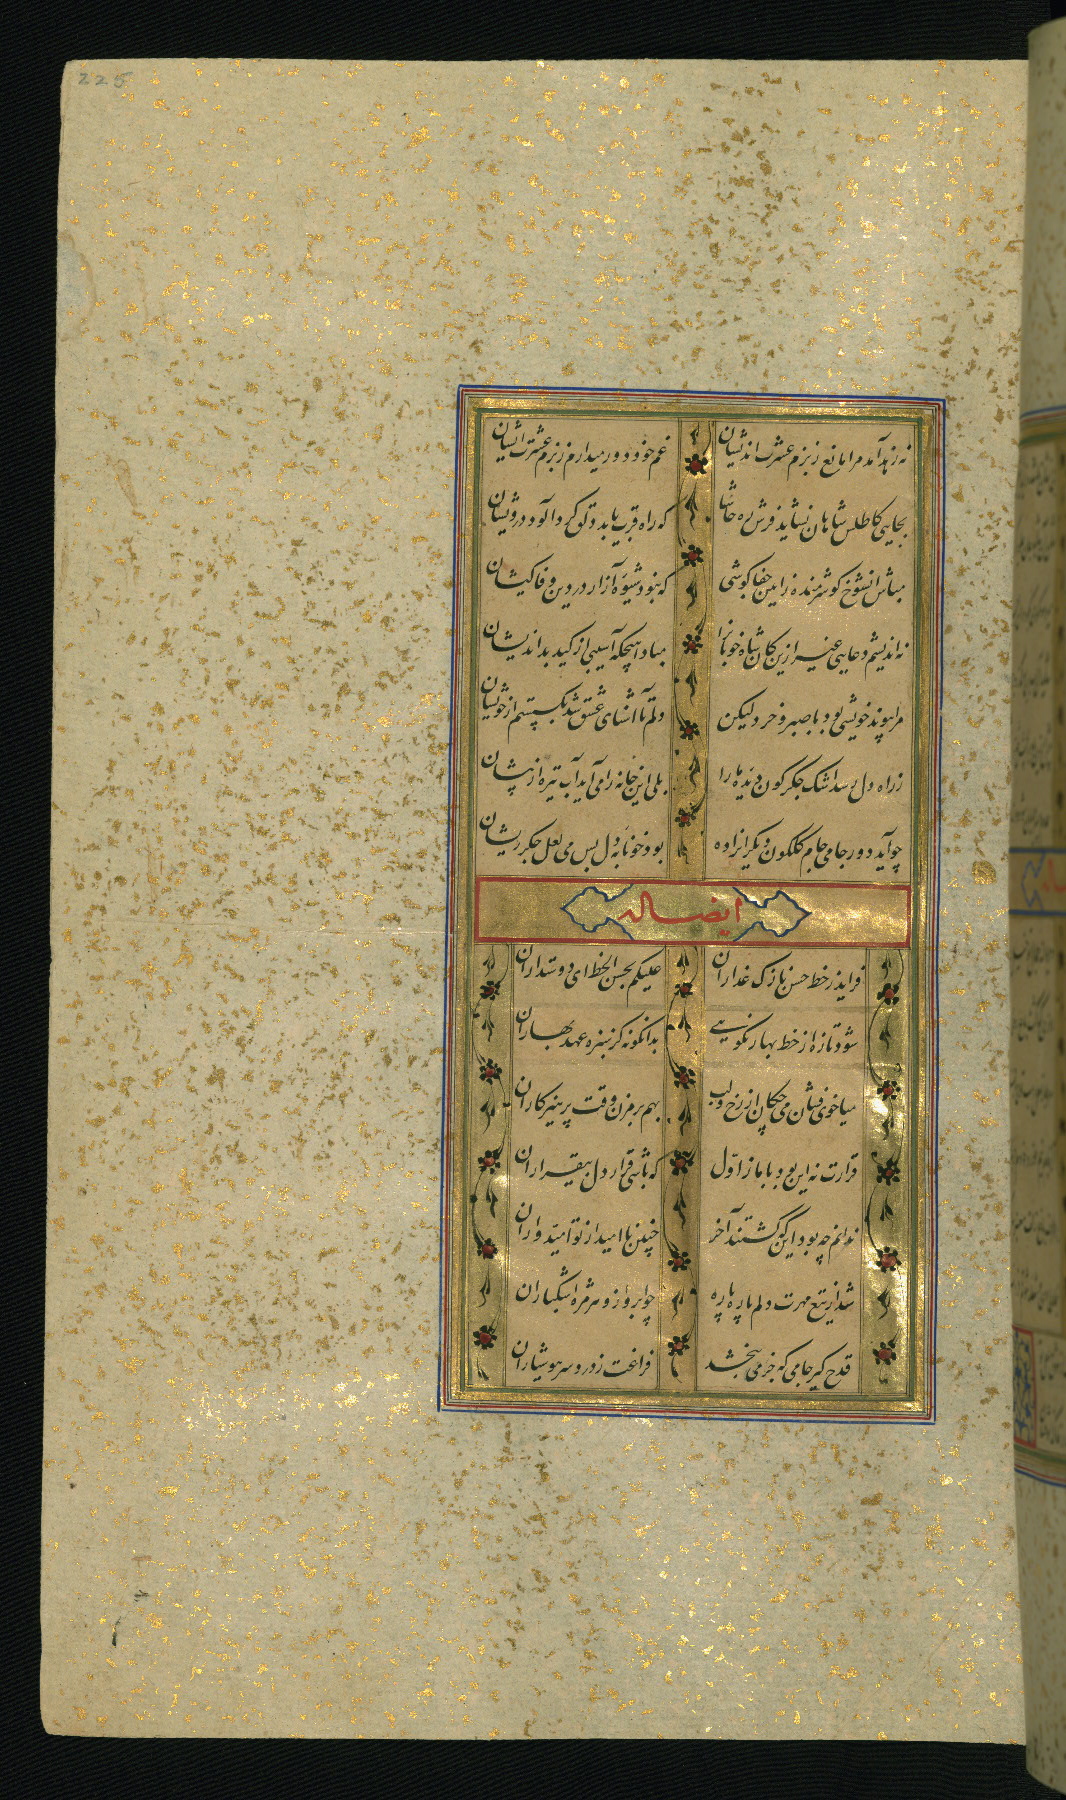 225
نه زهد آمد مرا مانع ز بزم عشرت اندیشان غم خود دور میدارم ز بزم عشرت ایشان
بجایی کاطلس شاهان نشاید فرش ره حاشا که راه قرب یابد دلق گرد آلود درویشان
مباش انشوخ کو شرمنده زایین جفا کوشی که نبود شیوه آزار در دین وفا کیشان
نه اندیشم دعایی غیر ازین کان شاه خوبانرا مبادا هیچگه آسیبی از کید بداندیشان
مرا پیوند خویشی بود با صبر و خرد لیکن دلم تا آشنای عشق شد بگسستم از خویشان
ز راه دل رسد اشک جگرگون دیده ها را بلی این خانه را می آید آب تیره از پیشان
چو آید دور جامی جام گلگون دیگرانرا ده بود خونابه دل بس می لعل جگر ریشان
ایضاله
فزاید ز خط حسن نازک عذاران علیکم بحسن الخط ای دوستداران
شود تازه از خط بهار نکویی بدانگونه کز سبزه عهد بهاران
بیا خوی فشان می چکان از رخ و لب بهم بر مزن وقت پرهیزکاران
قرارت نه این بود با ما ز اول که باشی قرار دل بیقراران
ندانم چه بود این که گشتند آخر چنین نا امید از تو امیدواران
شد از تیغ مهرت دلم پاره پاره چو ابر و ازو هر مژه اشکباران
قدح گیر جامی که جز می نبخشد فراغت ز درد سر هوشیاران